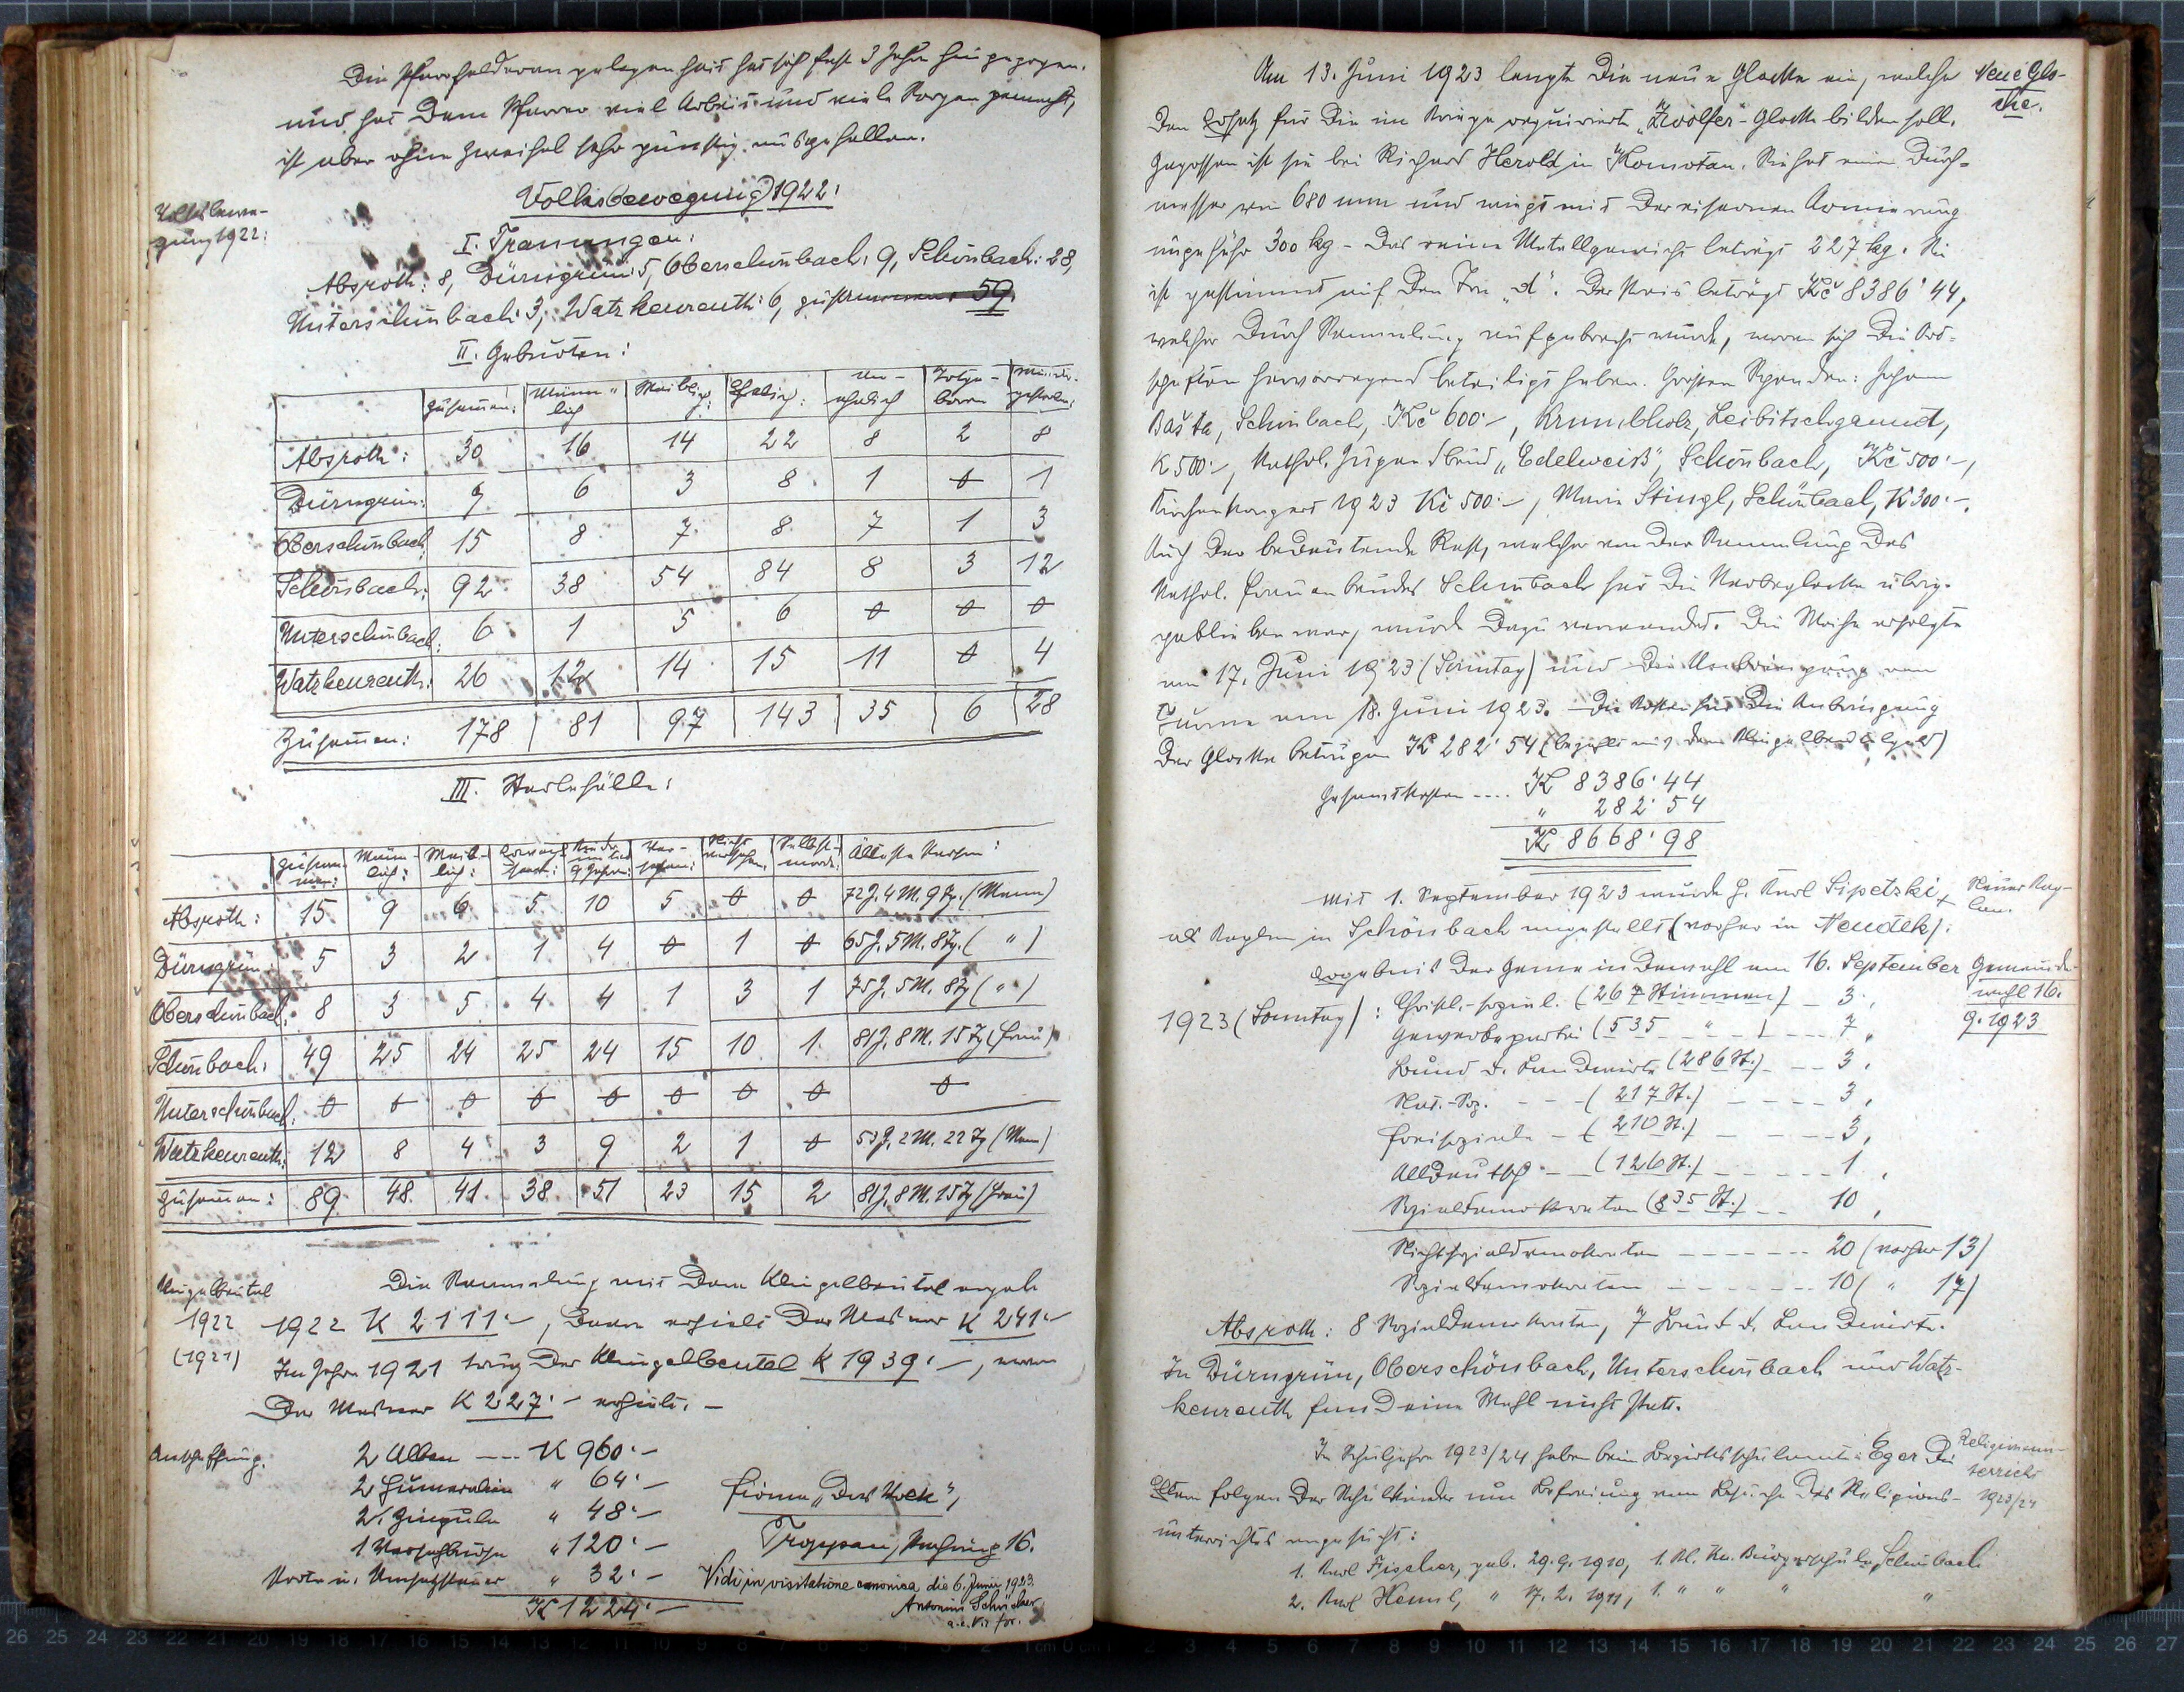 Die Pfarrfeldereangelegenheit hat sich fast 3 Jahre hingezogen.
und hat dem Pfarrer viel Arbeit und viele Sorgen gemacht,
ist aber ohne Zweifel sehr günstig ausgefallen.
Volksbewegung 1922:
Volksbewe-
gung 1922:
I. Trauungen:
Absroth: 8, Dürngrün: 5, Oberschönbach: 9, Schönbach: 28,
Unterschönbach: 3, Watzkenreuth: 6, zusammen: 59.
II. Geburten:
Zusammen: Männ- lich Weiblich: Ehelich: Un- ehelich Totge- boren
Absroth: 30 16 14 22 8 2 8
Dürngrün: 9 6 3 8 1 0 1
Oberschönbach: 15 8 7 8 7 1 3
Schönbach: 92 38 54 84 8 3 12
Unterschönbach: 6 1 5 6 0 0 0
Watzkenreuth: 26 12 14 15 11 0 4
Zusammen: 178 81 97 143 35 6 28
III. Sterbefälle:
Zusam- men: Männ- lich: Weib- lich: Erwach- sene: Kinder unter 9 Jahren: Ver- sehen: Nicht versehen: Selbst- morde: Älteste Person:
Absroth: 15 9 6 5 10 5 0 0 72 J. 4 M. 9 Tg. (Mann)
Dürngrün: 5 3 2 1 4 0 1 0 65 J. 5 M. 8 Tg. ( " )
Oberschönbach: 8 3 5 4 4 1 3 1 75 J. 5 M. 8 Tg ( " )
Schönbach: 49 25 24 25 24 15 10 1 81 J. 8 M. 15 Tg (Frau)
Unterschönbach: 0 0 0 0 0 0 0 0 0
Watzkenreuth: 12 8 4 3 9 2 1 0 53 J. 2 M. 22 Tg (Mann)
Zusammen: 89 48 41 38 51 23 15 2 81 J. 8 M. 15 Tg (Frau)
Klingelbeutel
1922
(1921)
Die Sammlung mit dem Klingelbeutel ergab
1922 K 2111·–, davon erhielt der Mesner K 241·–
Im Jahre 1921 trug der Klingelbeutel K 1939·–, wovon
der Mesner K 227·– erhielt. –
Anschaffung.
2 Alben --- K 960·–
2 Humeralien " 64·–
2 Zingula " 48·–
1 Versehburse " 120·–
Porto u. Umsatzsteuer " 32·–
K 1224·–
Firma
Troppau, 16.
Vidi in visitatione canonica die 6. Junii 1923.
Antonius
Am 13. Juni 1923 langte die neue Glocke ein, welche
Neue Glo-
cke.
den Ersatz für die im Kriege requirierte „Zwölfer"-Glocke bilden soll.
Gegossen ist sie bei Richard Herold in Komotau. Sie hat einen Durch-
messer von 680 mm und wiegt mit der eisernen Armierung
ungefähr 300 kg – das reine Metallgewicht beträgt 227 kg. Sie
ist gestimmt auf den Ton „d". Der Preis beträgt Kč 8386·44,
welcher durch Sammlung aufgebracht wurde, woran sich die Ort-
schaften hervorragend beteiligt haben. Größere Spenden: Johann
Bašta, Schönbach, Kč 600·–, Krumbholz, Leibitschgrund,
K 500·–, Kathol. Jugendbund „Edelweiß", Schönbach, Kč 500·–,
Kirchenkonzert 1923 Kč 500·–, Marie Stingl, Schönbach, K 300·–.
Auch der bedeutende Rest, welcher von der Sammlung des
Kathol. Frauenbundes Schönbach für die Sterbeglocke übrig-
geblieben war, wurde dazu verwendet. Die Weihe erfolgte
am 17. Juni 1923 (Sonntag) und die Anbringung am
Turme am 18. Juni 1923. – Die Kosten für die Anbringung
der Glocke betrugen K 282·54 (bezahlt mit dem Klingelbeutelgeld)
Gesamtkosten .... K 8386·44
" 282·54
K 8668·98
Mit 1. September 1923 wurde H. Karl Sipetzki
Neuer Kap-
lan.
als Kaplan in Schönbach angestellt (vorher in Neudek).
Ergebnis der Gemeindewahl am 16. September
Gemeinde-
wahl 16.
9. 1923
1923 (Sonntag): Christl.-sozial. (267 Stimmen) – 3,
Gewerbepartei (535 " ) --- 7 "
Bund d. Landwirte (286 St.) --- 3,
Nat.-Soz. --- (217 St.) ---- 3,
Freisoziale – (210 St.) ---- 3,
Alldeutsch – (126 St.) ---- 1,
Sozialdemokraten (835 St.) -- 10,
Nichtsozialdemokraten ------- 20 (vorher 13)
Sozialdemokraten ------- 10 ( " 17)
Absroth: 8 Sozialdemokraten, 7 Bund d. Landwirte.
In Dürngrün, Oberschönbach, Unterschönbach und Watz-
kenreuth fand eine Wahl nicht statt.
Im Schuljahre 1923/24 haben beim Bezirksschulamte Eger die
Religionsun-
terricht
1923/24
Eltern folgender Schulkinder um Befreiung vom Besuche des Religions-
unterrichtes angesucht:
1. Karl Fischer, geb. 29. 9. 1910, 1. Kl. Kn. Bürgerschule Schönbach
2. Karl Hammerl, " 17. 2. 1911, 1. " " " "